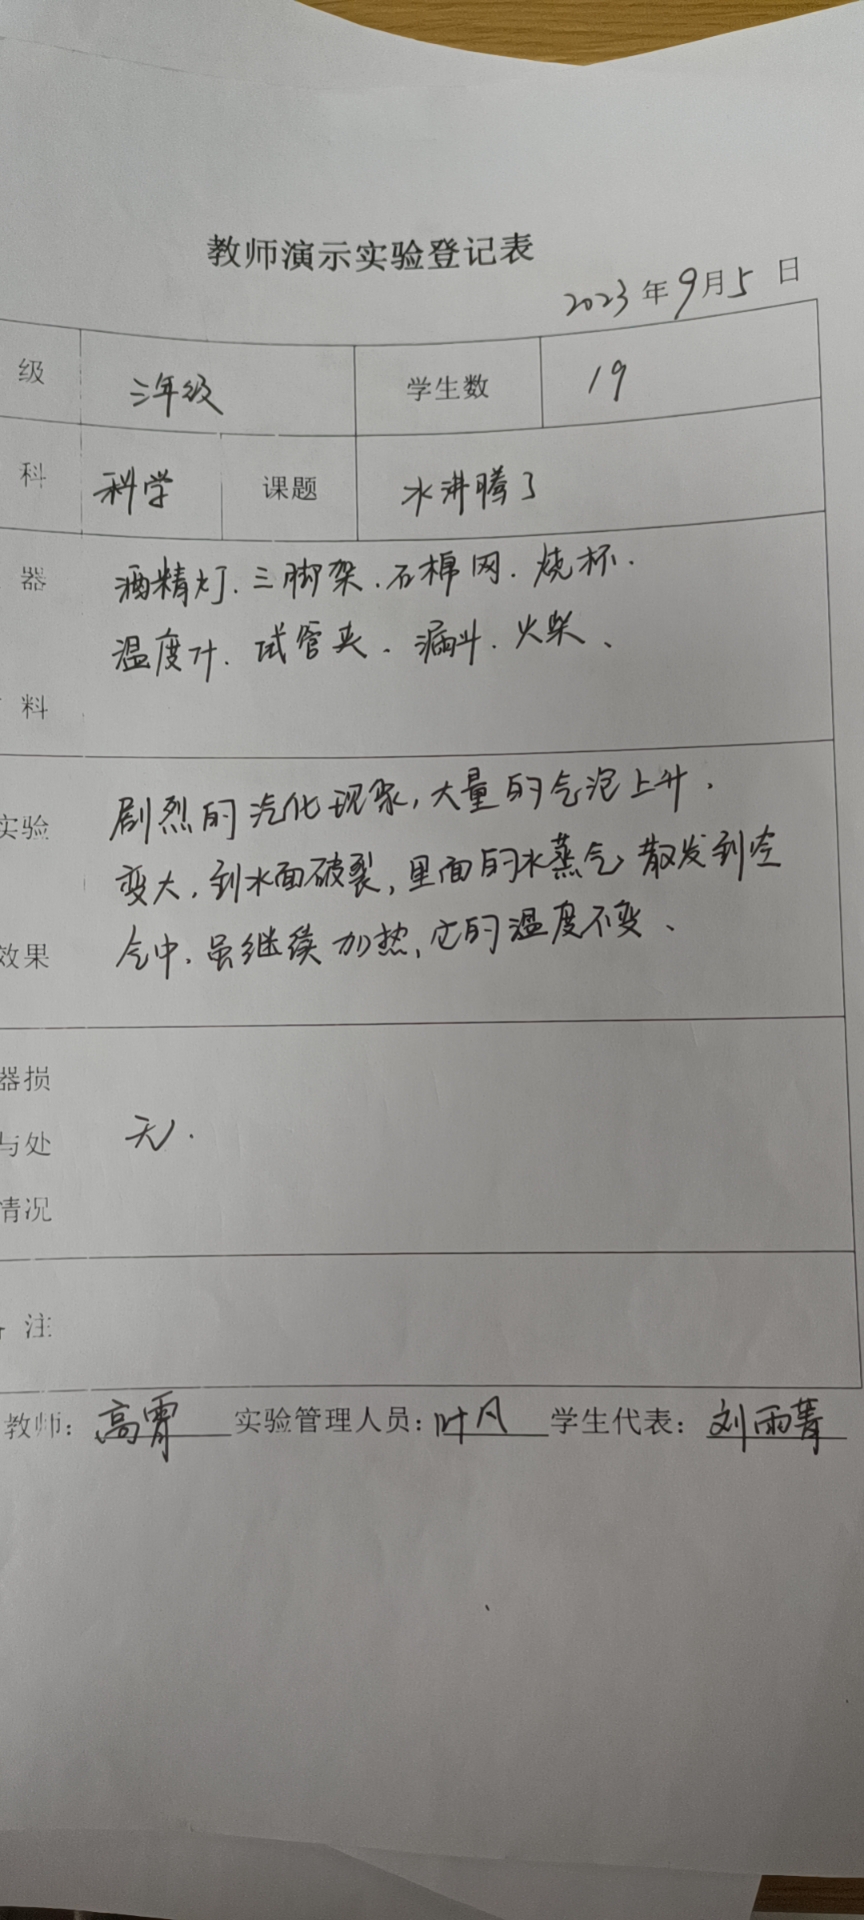 教师演示实验登记表
2023年9月5日
级 三年级 学生数 19
科 科学 课题 水沸腾了
器 酒精灯、三脚架、石棉网、烧杯、
温度计、试管夹、漏斗、火柴、
料
剧烈的汽化现象,大量的气泡上升、
实验
变大,到水面破裂,里面的水蒸气散发到空
气中,虽继续加热,它的温度不变、
效果
器损
与处 无.
情况
注
教师:高霄 实验管理人员:叶凡 学生代表:刘雨菁